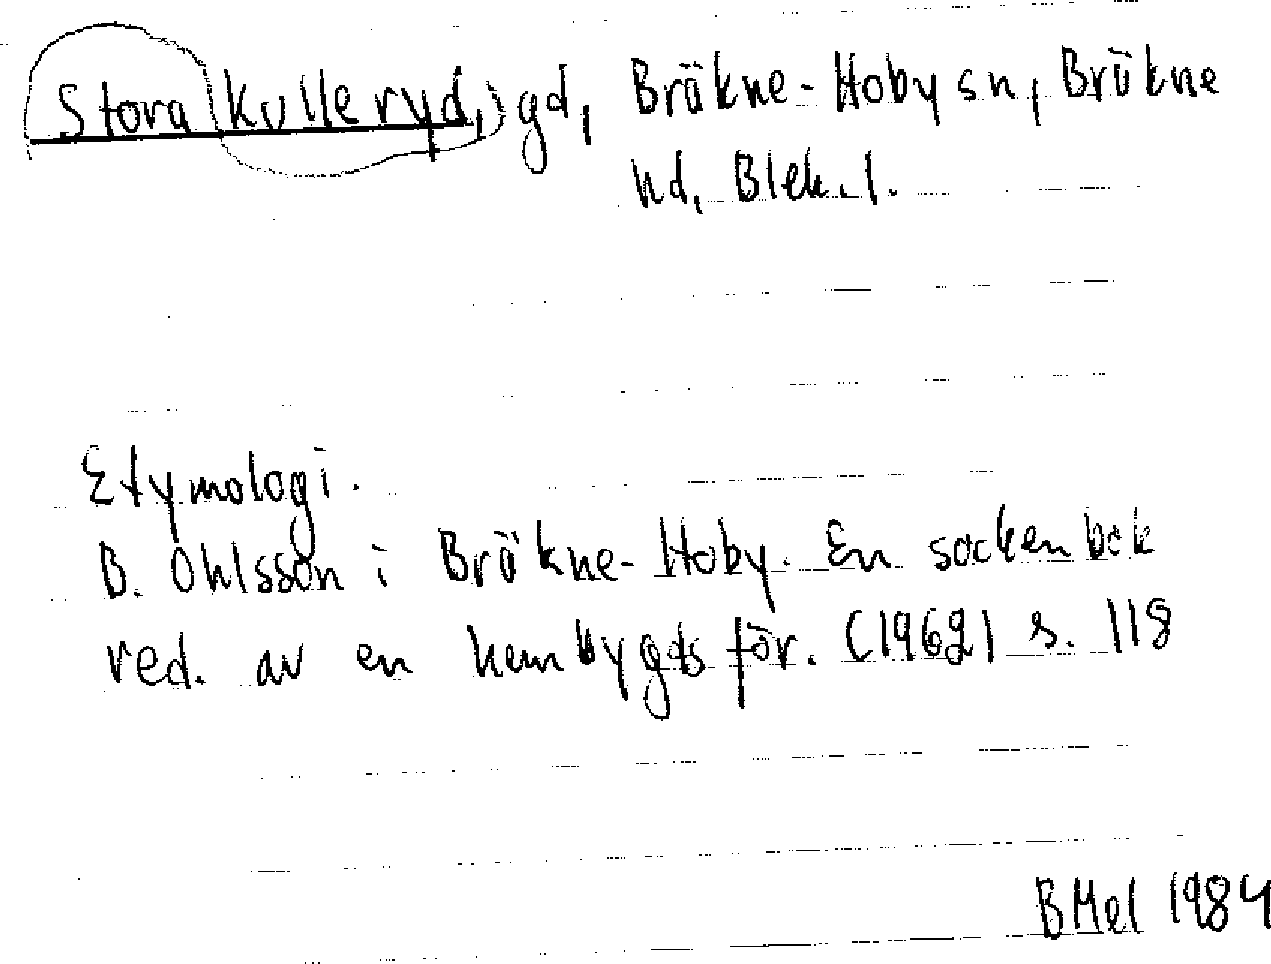 Stora Kulleryd, gd, Bräkne-Hoby sn, Bräkne
hd, Blek. l.
Etymologi.
B. Ohlsson i Bräkne-Hoby. En sockenbok
red. av en hembygdsför. (1962) s. 118
BMel 1984